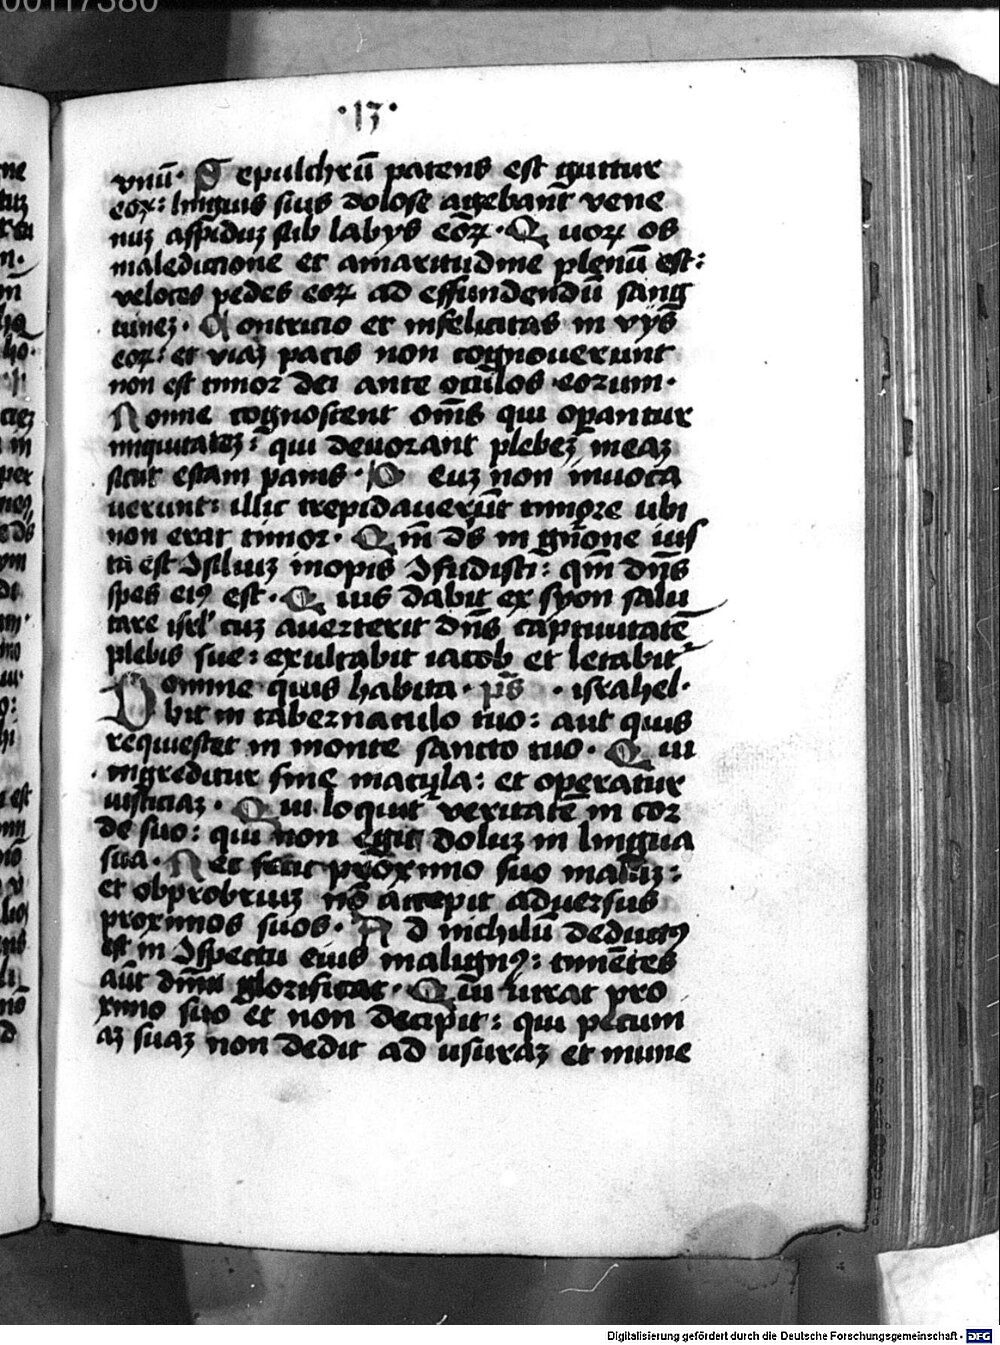 00117380
·13·
vnū· Sepulchrū patens est guttur
eoꝝ: linguis suis dolose agebant̄ vene
nuʒ aspiduʒ sub labys eōꝝ· Quoꝝ os
maledictione et amaritudine plenū est:
veloces pedes eoꝝ ad effundendū sang
uineʒ· Contricio et infelicitas in vys̄
eoꝝ: et viaʒ pacis non cognouerunt
non est timor dei ante oculos eorum·
Nonne cognoscent om̄s qui operantur
iniquitateʒ: qui deuorant plebeʒ meaʒ
sicut escam panis· Deuʒ non inuoca
uerunt: illic trepidauerūt timore ubi
non erat timor· Qm̄ ds in gn̄one ius
ta est Ↄsiliuʒ inopis Ↄfudisti: qm̄ dn̄s
spes eiꝰ est· Quis dabit ex syon salu
tare isrl' cuʒ auerterit dn̄s captiuitatē
plebis sue: exultabit iacob et letabit᷑
Domine quis habita· ps̄ · israhel·
bit in tabernaculo tuo: aut quis
requiescet in monte sancto tuo· Qui
ingreditur sine macula: et operatur
iusticiaʒ· Qui loquit᷑ veritatē in cor
de suo: qui non egit doluʒ in lingua
sua· Nec fecit proximo suo maluʒ:
et obprobriuʒ nō accepit aduersus
proximos suos· Ad nichilū deductꝰ
est in Ↄspectu eius malignꝰ: timētes
aūt dn̄m glorificat· Qui iurat pro
ximo suo et non decipit: qui pecuni
aʒ suaʒ non dedit ad usuraʒ et mune
Digitalisierung gefördert durch die Deutsche Forschungsgemeinschaft - DFG